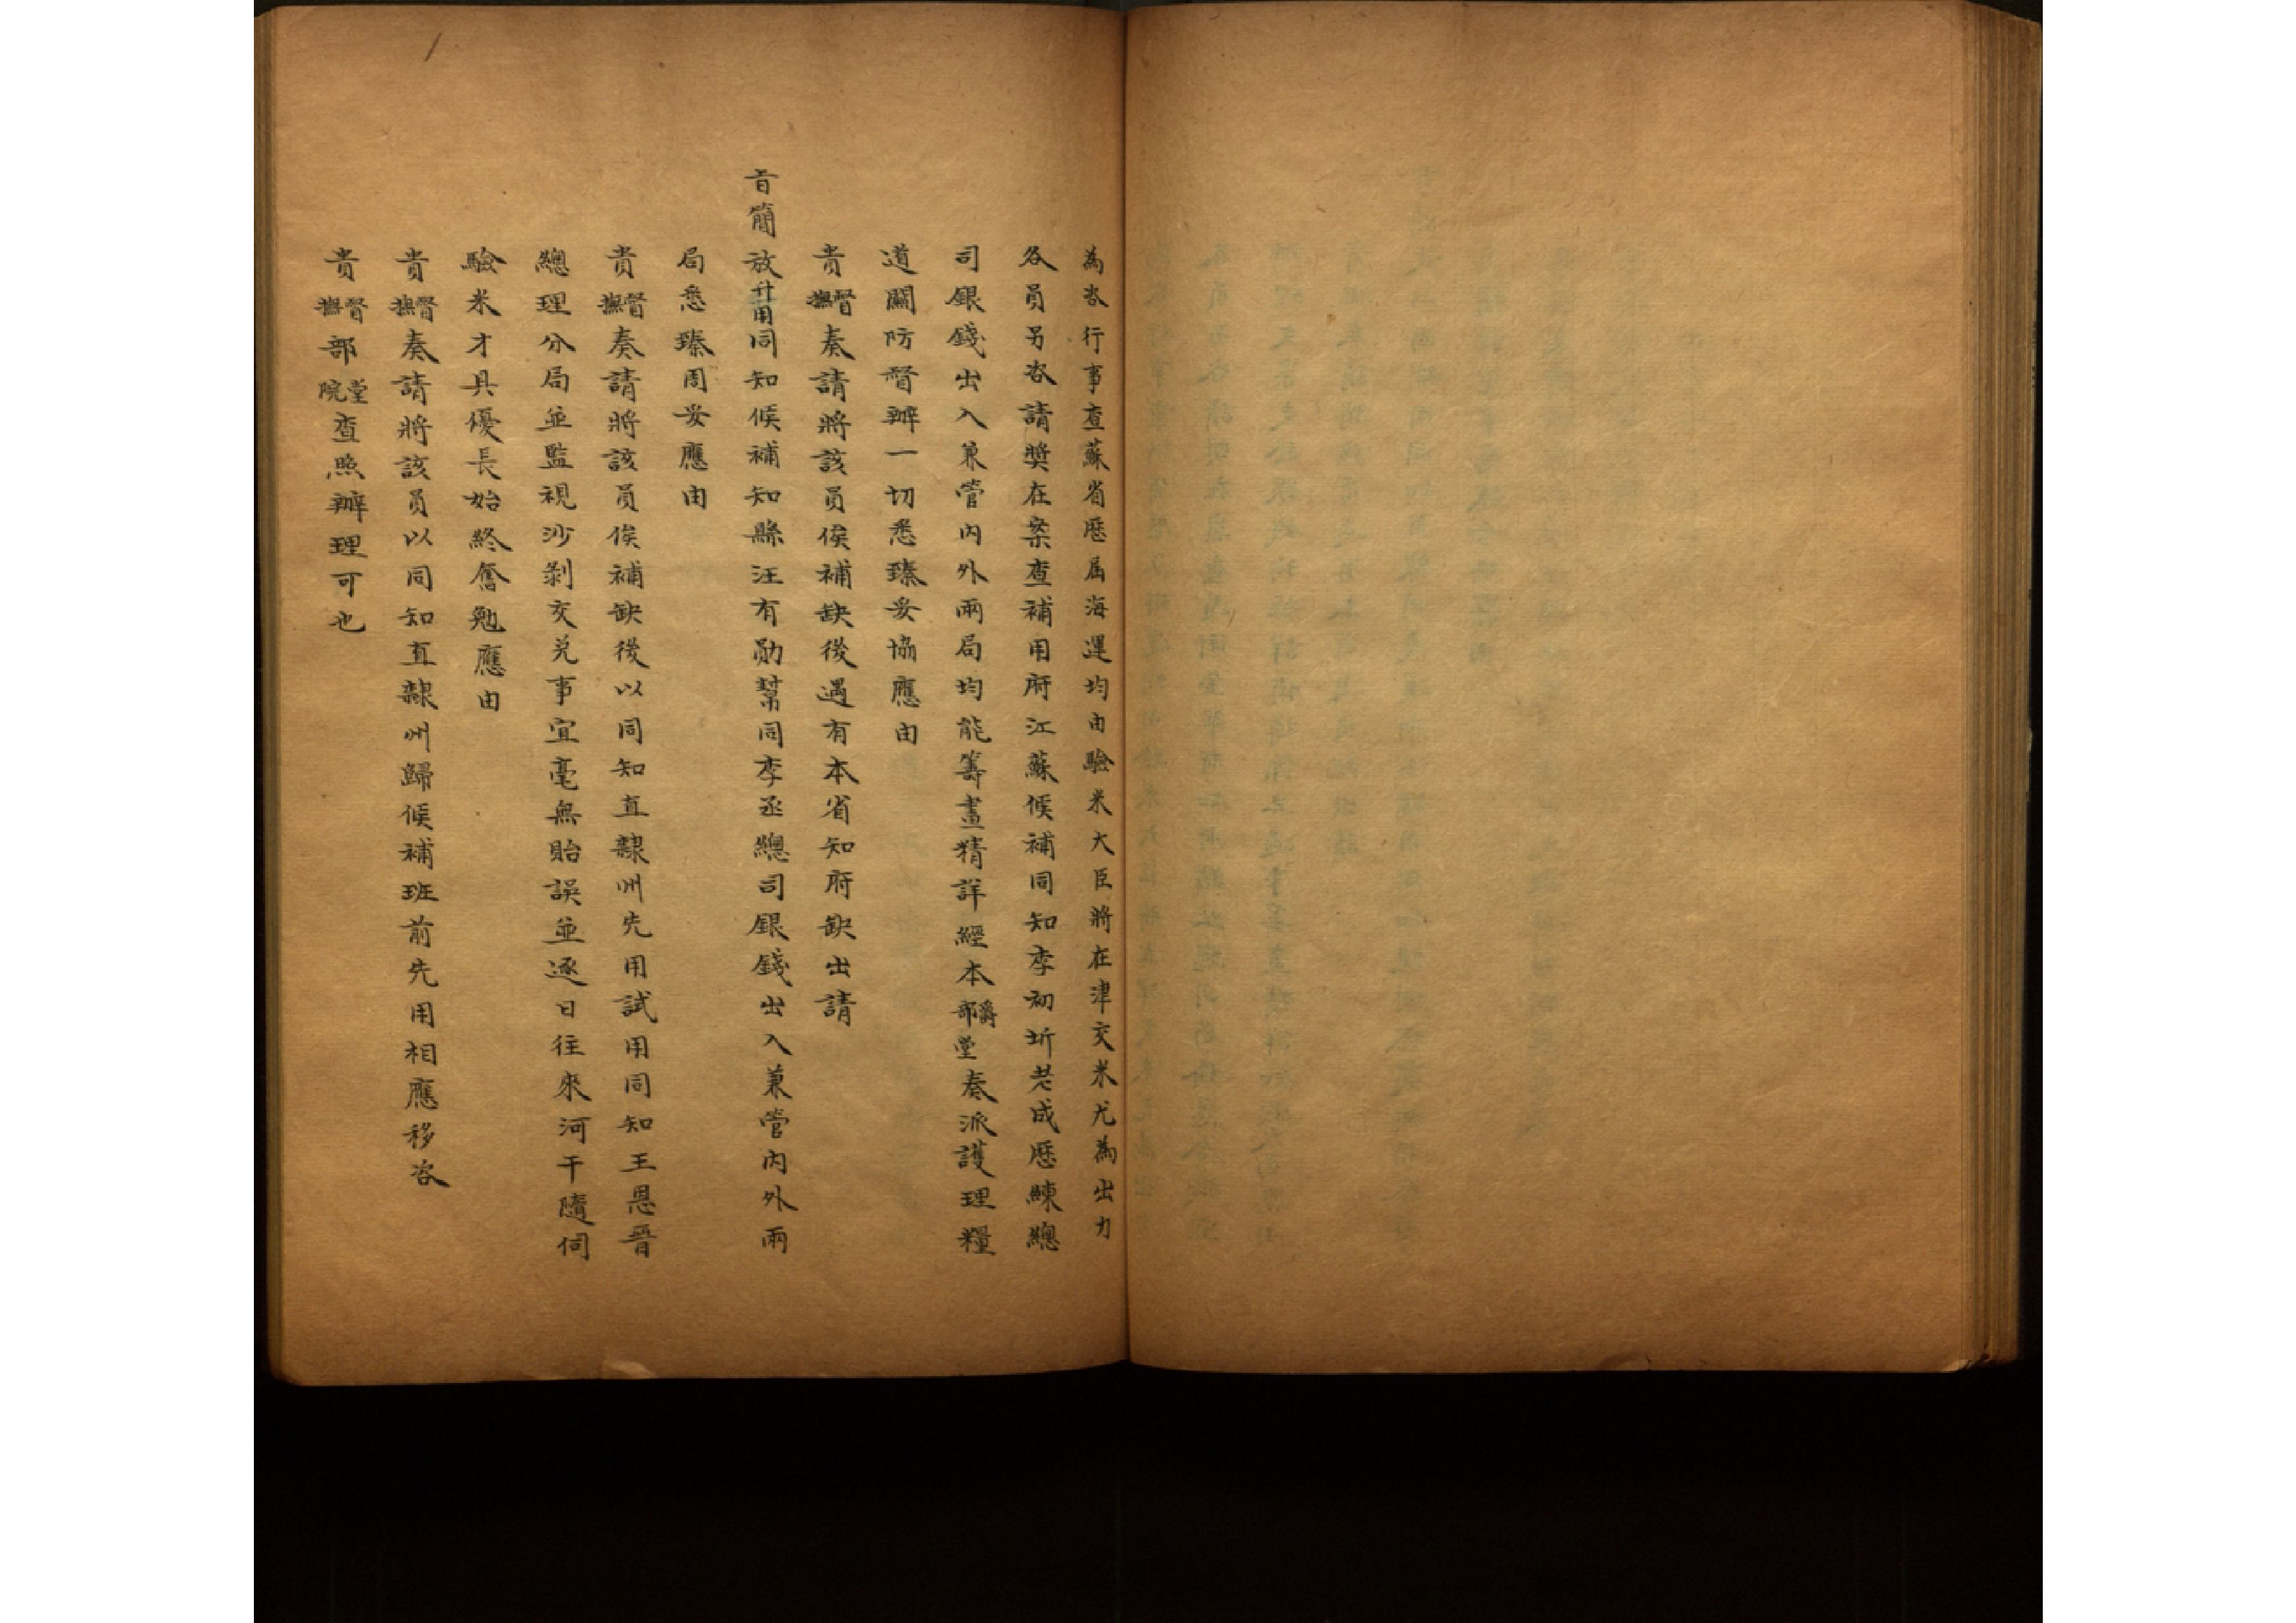 為咨行事查蘇省歷屆海運均由驗米大臣將在津交米尤為出力
各員另咨請奬在案查補用府江蘇候補同知李初圻老成歷練總
司銀錢出入兼管內外兩局均能籌畫精詳經本爵部堂奏派護理糧
道關防督辦一切悉臻妥協應由
貴督撫奏請將該員俟補缺後遇有本省知府缺出請
旨簡放升用同知候補知縣汪有勛幫同李丞總司銀錢出入兼管內外兩
局悉臻周妥應由
貴督撫奏請將該員俟補缺後以同知直隸州先用試用同知王恩晋
總理分局並監視沙剝交兑事宜毫無貽誤並逐日往來河干隨伺
驗米才具優長始終奮勉應由
貴督撫奏請將該員以同知直隸州歸候補班前先用相應移咨
貴督撫部堂院查照辦理可也